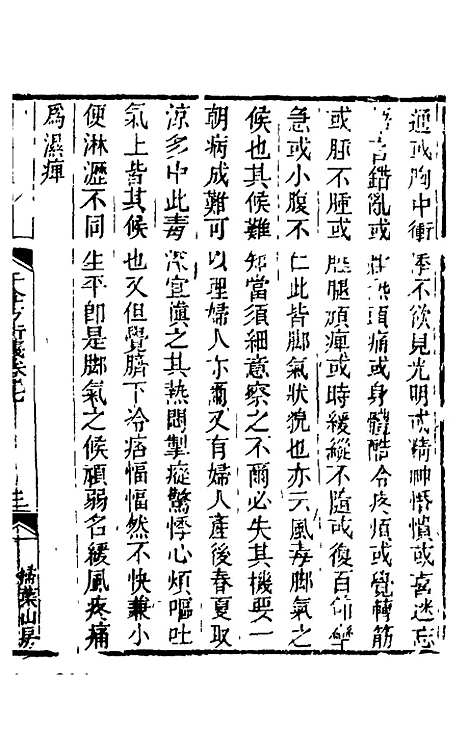 通或胸中衝悸不欲見光明或精神惛憒或喜迷忘
語言錯亂或壯熱頭痛或身體酷冷疼煩或覺轉筋
或腫不腫或䏶腿頑痺或時緩縱不隨或復百節攣
急或小腹不仁此皆脚氣狀貌也亦云風毒脚氣之
候也其候難知當須細意察之不爾必失其機要一
朝病成難可以理婦人亦爾又有婦人產後春夏取
涼多中此毒深宜慎之其熱悶掣瘲驚悸心煩嘔吐
氣上皆其候也又但覺臍下冷痞愊愊然不快兼小
便淋瀝不同生平即是脚氣之候頑弱名緩風疼痛
爲濕痺
千金方衍義卷七
掃葉山房